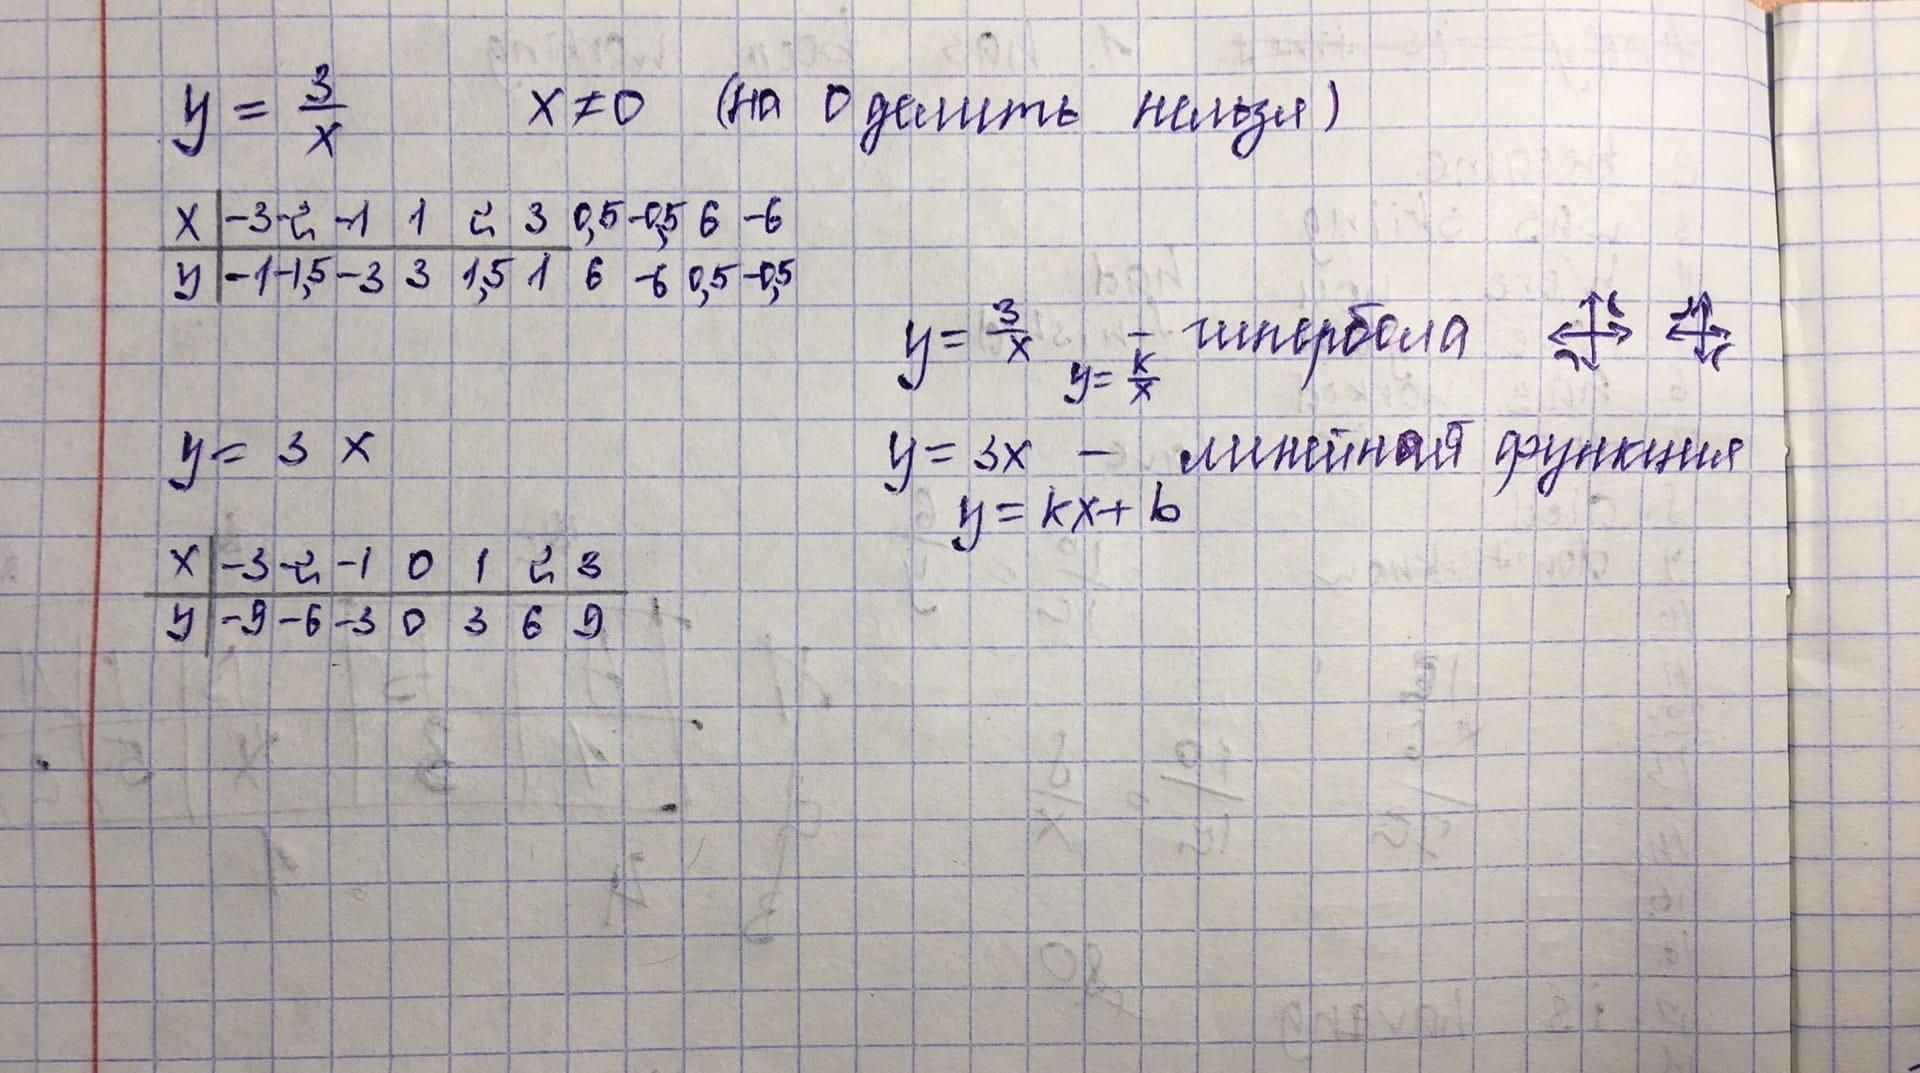 y = 3/x x ≠ 0 (на 0 делить нельзя)
x | -3 -2 -1 1 2 3 0,5 -0,5 6 -6
y | -1 -1,5 -3 3 1,5 1 6 -6 0,5 -0,5
y = 3/x - гипербола
y = k/x
y = 3x
y = 3x - линейная функция
y = kx + b
x | -3 -2 -1 0 1 2 3
y | -9 -6 -3 0 3 6 9